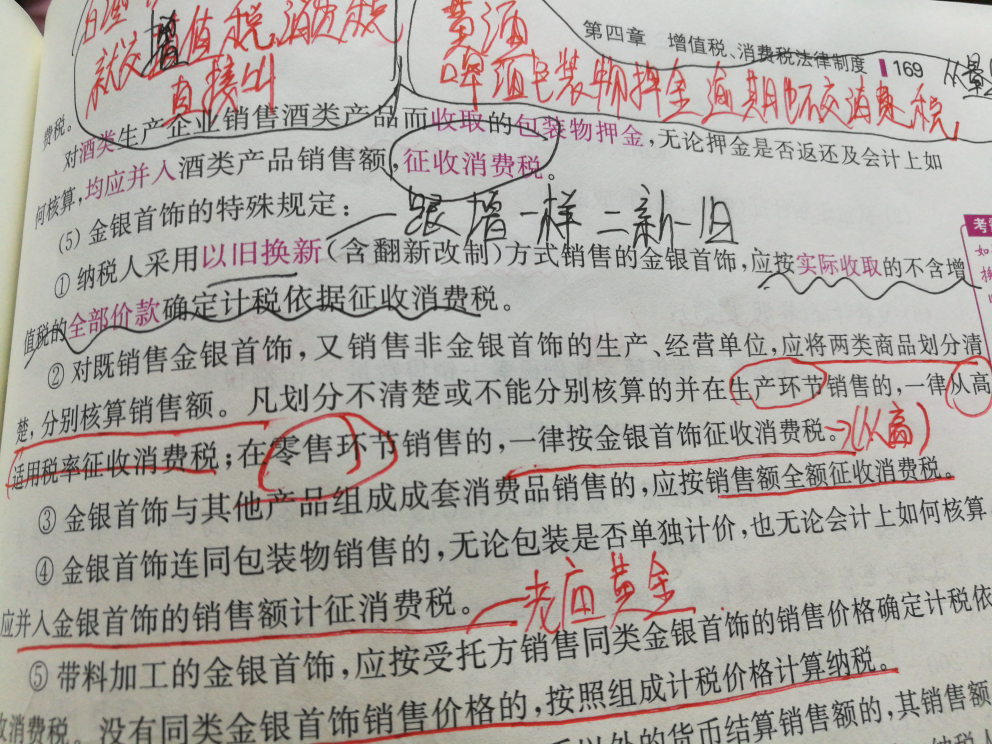 白
就交增值税、消费税
直接出
黄酒
啤酒包装物押金逾期的不交消费税
从量
第四章 增值税、消费税法律制度 169
费税。
对酒类生产企业销售酒类产品而收取的包装物押金，无论押金是否返还及会计上如
何核算，均应并入酒类产品销售额，征收消费税。
(5) 金银首饰的特殊规定：
跟增一样 二新一旧
① 纳税人采用以旧换新(含翻新改制)方式销售的金银首饰，应按实际收取的不含增
值税的全部价款确定计税依据征收消费税。
② 对既销售金银首饰，又销售非金银首饰的生产、经营单位，应将两类商品划分清
楚，分别核算销售额。凡划分不清楚或不能分别核算的并在生产环节销售的，一律从高
适用税率征收消费税；在零售环节销售的，一律按金银首饰征收消费税。(从高)
③ 金银首饰与其他产品组成成套消费品销售的，应按销售额全额征收消费税。
④ 金银首饰连同包装物销售的，无论包装是否单独计价，也无论会计上如何核算，
应并入金银首饰的销售额计征消费税。
老庙黄金
⑤ 带料加工的金银首饰，应按受托方销售同类金银首饰的销售价格确定计税依
收消费税。没有同类金银首饰销售价格的，按照组成计税价格计算纳税。
以外的货币结算销售额的，其销售额
纳税人
考
如